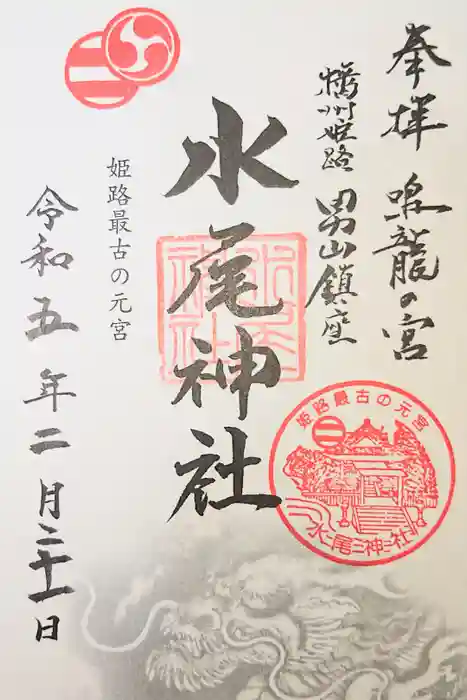 奉拝 鳴龍の宮
播州姫路 男山鎮座
水尾神社
姫路最古の元宮
令和五年二月二十一日
姫路最古の元宮
水尾神社